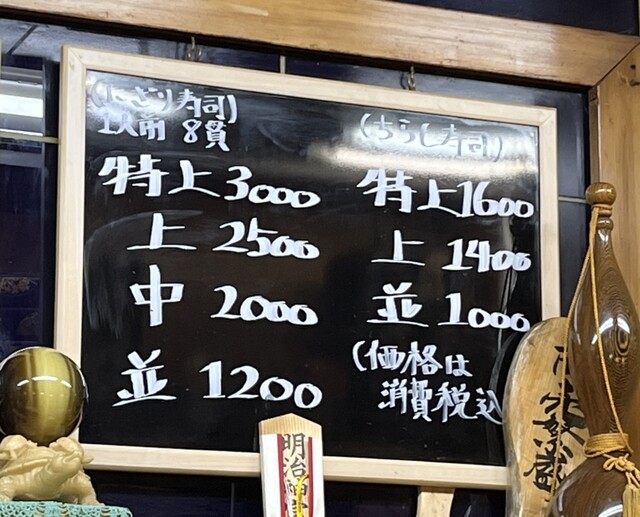 (にぎり寿司)
1人前 8貫
特上 3000
上 2500
中 2000
並 1200
(ちらし寿司)
特上 1600
上 1400
並 1000
(価格は
消費税込
明治神宮